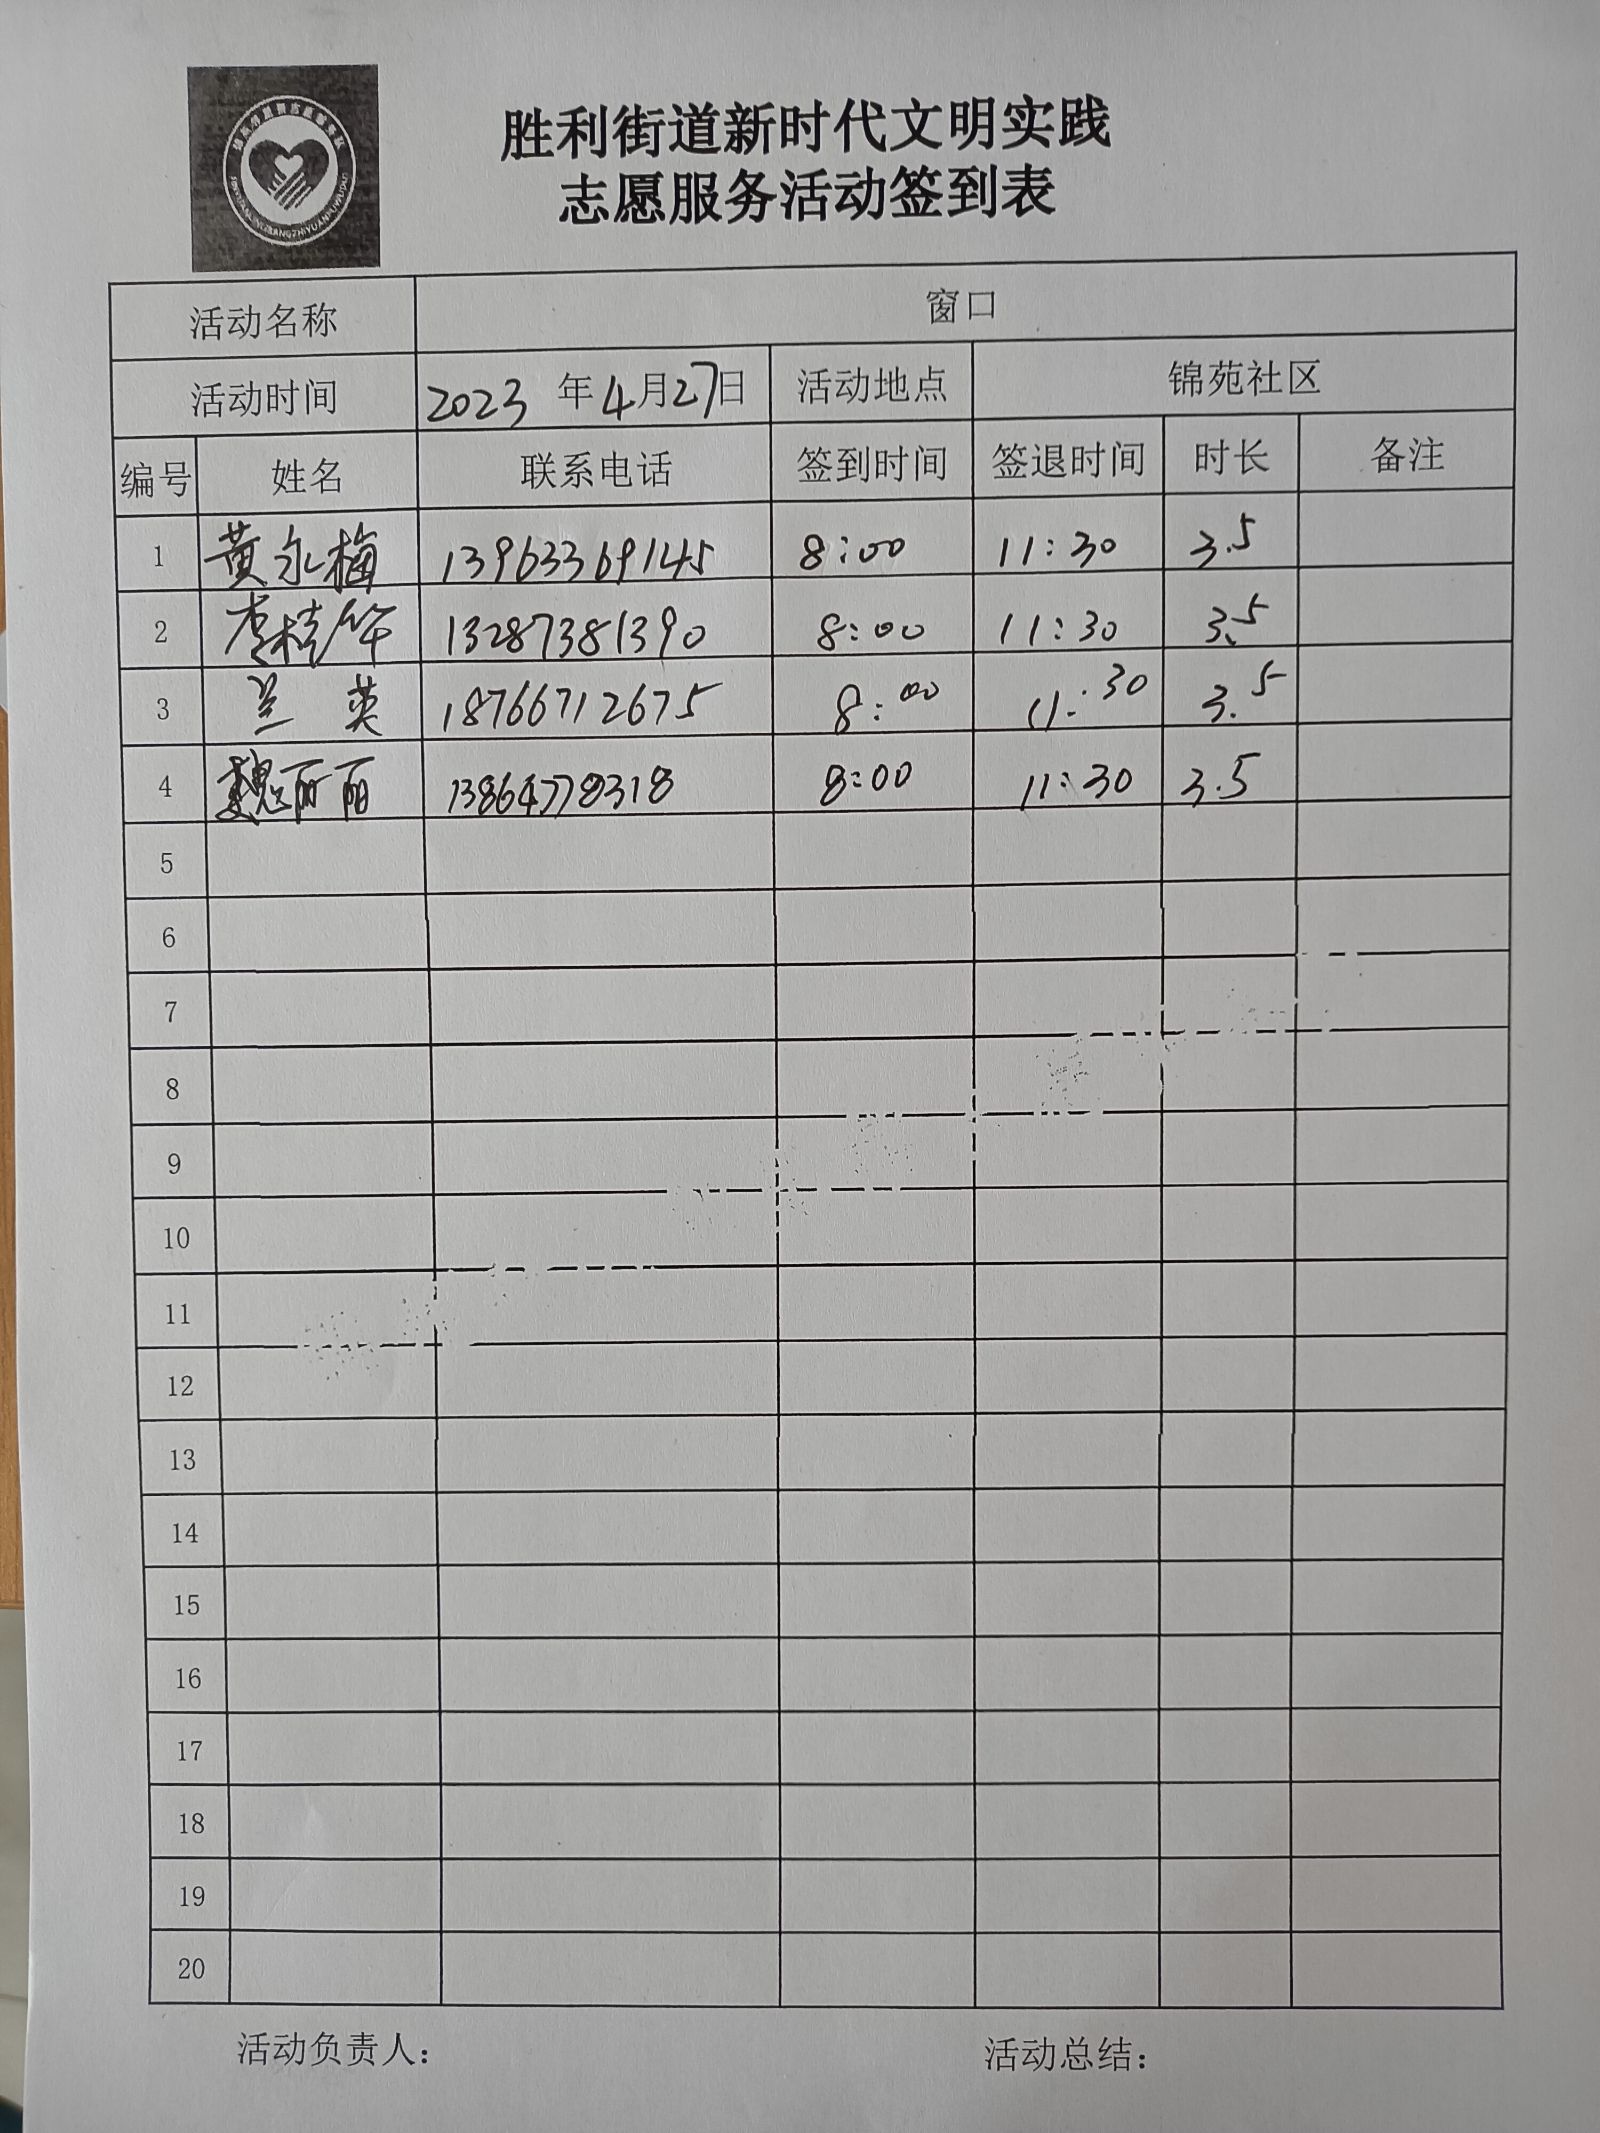 胜利街道新时代文明实践
志愿服务活动签到表
活动名称 窗口
活动时间 2023 年 4月27日 活动地点 锦苑社区
编号 姓名 联系电话 签到时间 签退时间 时长 备注
1 黄永梅 13963369145 8:00 11:30 3.5
2 李桂华 13287381390 8:00 11:30 3.5
3 兰英 18766712675 8:00 11:30 3.5
4 魏丽丽 13864778318 8:00 11:30 3.5
5
6
7
8
9
10
11
12
13
14
15
16
17
18
19
20
活动负责人： 活动总结：